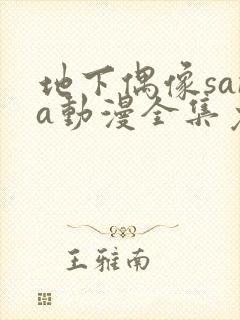 地下偶像sa
a動漫全集
王雅南